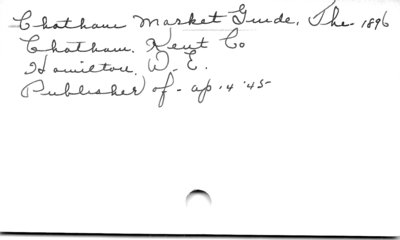 Chatham Market Guide, The. 1896
Chatham. Kent Co
Hamilton, W. E.
Publisher of - ap. 4 '45-